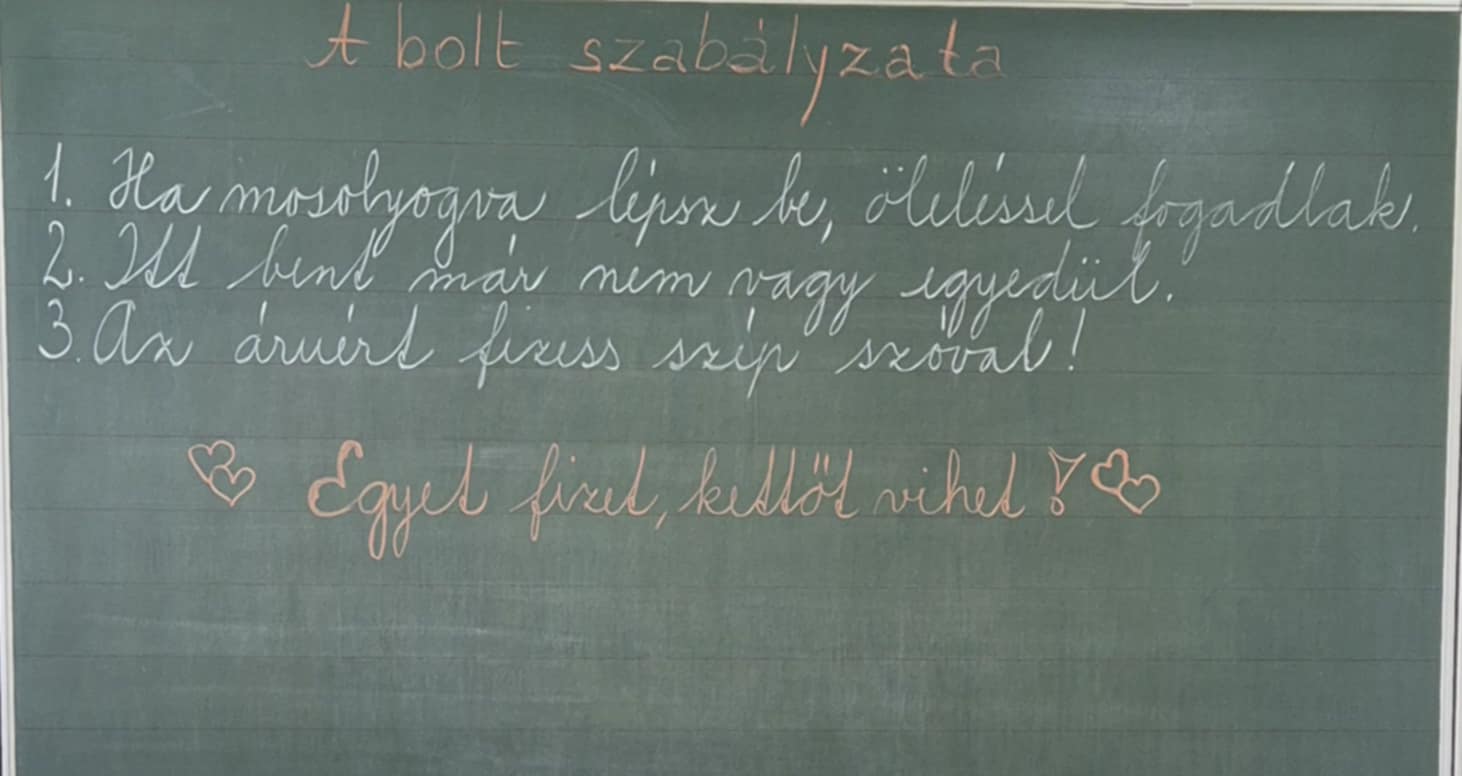 A bolt szabályzata
1. Ha mosolyogva lépsz be, öleléssel fogadlak.
2. Itt bent már nem vagy egyedül.
3. Az áruért fizess szép szóval!
Egyet fizet, kettőt vihet!